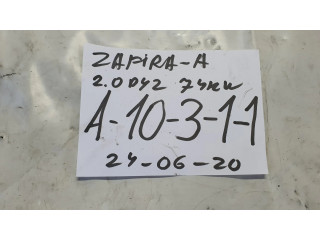 ZAPiRA-A
2.0 DYZ 74KW
A-10-3-1-1
24-06-20